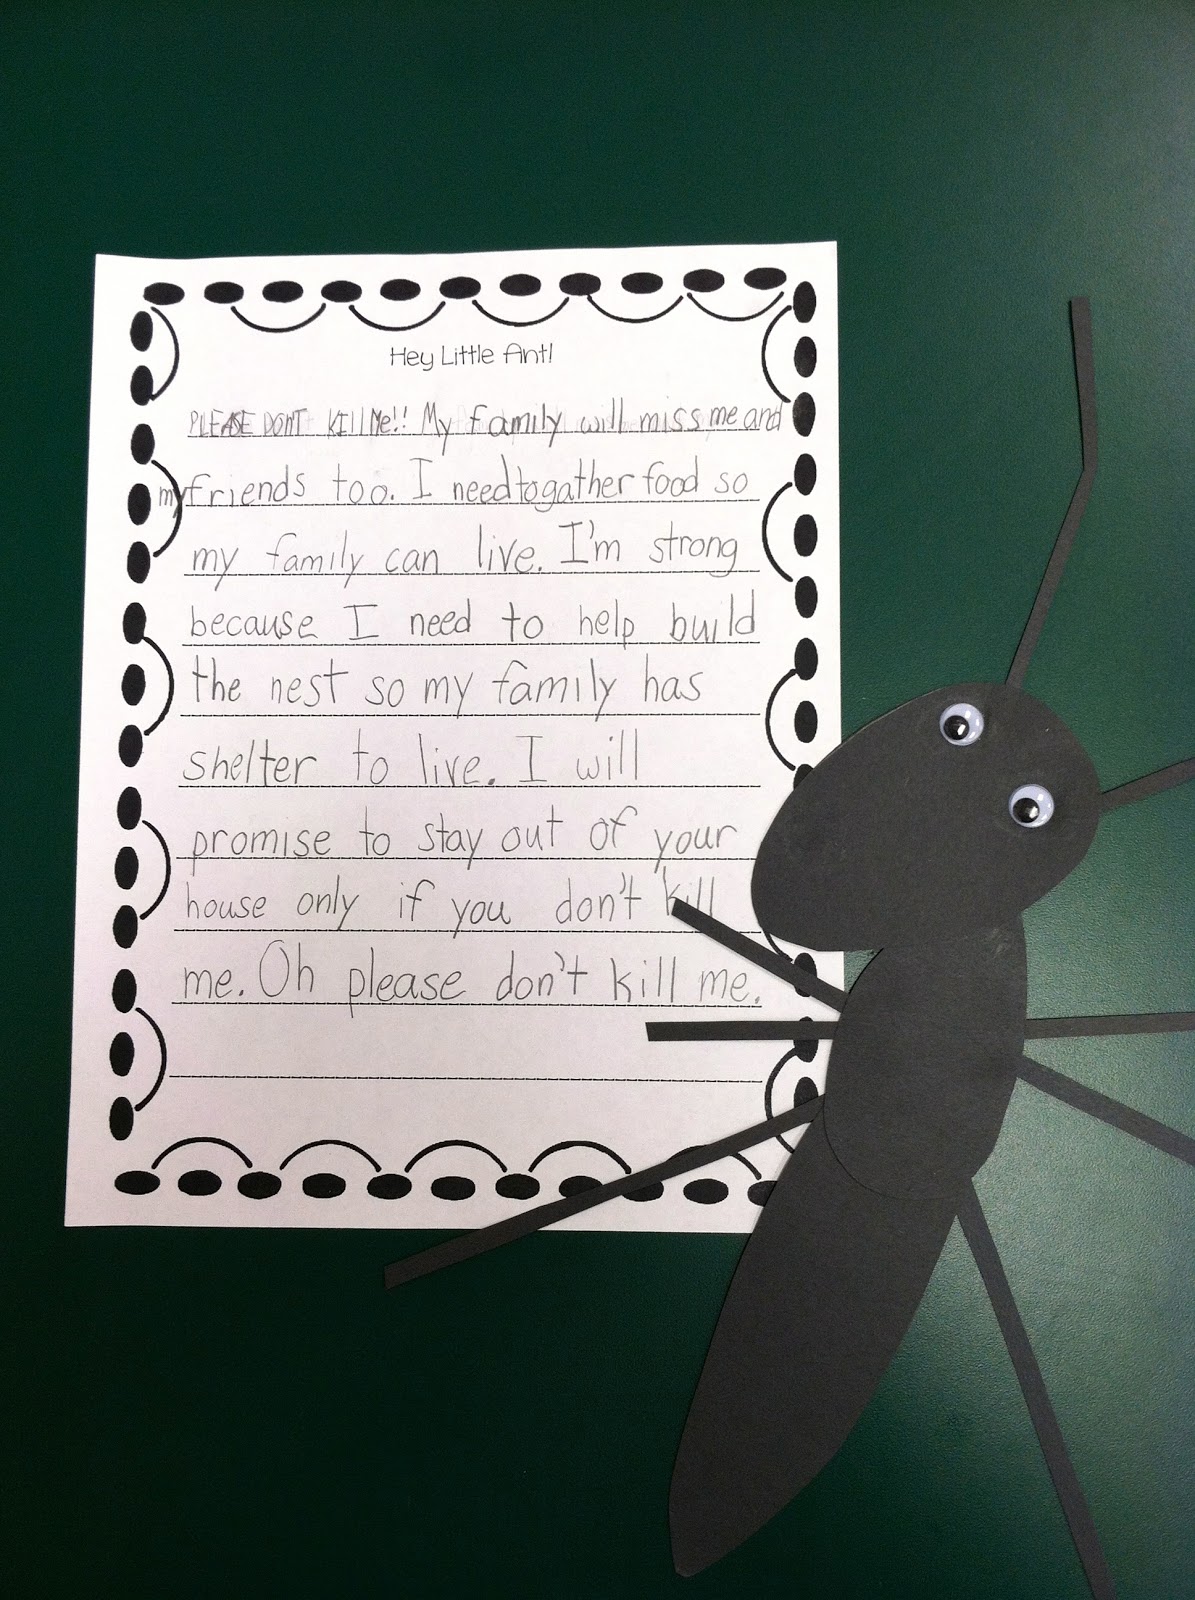 Hey Little Ant!
PLEASE DONT KILL Me!! My family will miss me and
my friends too. I need to gather food so
my family can live. I'm strong
because I need to help build
the nest so my family has
shelter to live. I will
promise to stay out of your
house only if you don't kill
me. Oh please don't kill me.